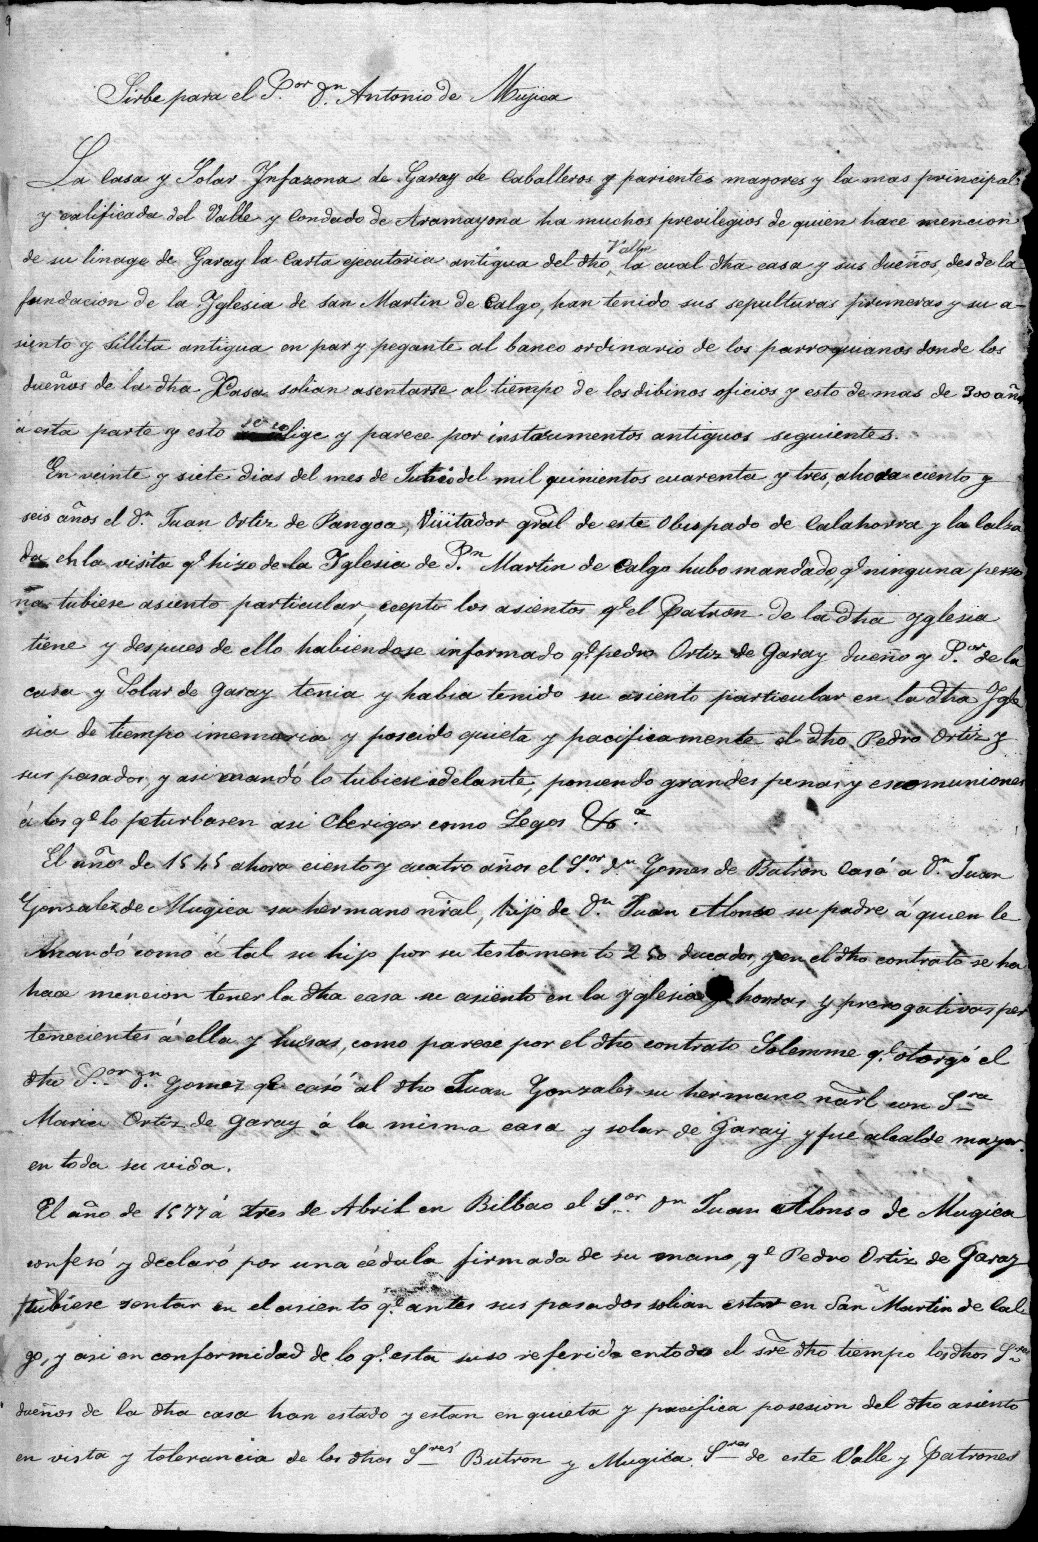 9
Sirbe para el S.or Dn. Antonio de Mujica
La Casa y Solar Ynfazona de Garay de Caballeros y parientes mayores y la mas principal
y calificada del Valle y Condado de Aramayona ha muchos previlegios de quien hace mencion
de su linage de Garay la Carta ejecutoria antigua del dho Valle la cual dha casa y sus dueños, desde la
fundacion de la Yglesia de san Martin de Calgo, han tenido sus sepulturas primeras y su a-
siento y sillita antigua en par y pegante al banco ordinario de los parroquianos donde los
dueños de la dha Casa solian asentarse al tiempo de los dibinos oficios y esto de mas de 300 añs
á esta parte y esto se colige y parece por instrumentos antiguos seguientes.
En veinte y siete dias del mes de Julio del mil quinientos cuarenta y tres, ahora ciento y
seis años el Dn. Juan Ortiz de Pangoa, Visitador gral de este Obispado de Calahorra y la Calza
da en la visita q.e hizo de la Iglesia de S.n Martin de Calgo hubo mandado, q.e ninguna perso
na tubiese asiento particular, cepto los asientos q.e el Patron de la dha Yglesia
tiene y despues de ello habiendose informado q.e pedro Ortiz de Garay dueño y S.or de la
casa y Solar de Garay tenia y habia tenido su asiento particular en la dha Ygle
sia de tiempo imemoria y poseido quieta y pacificamente el dho Pedro Ortiz y
sus pasados, y asi mandó lo tubiese adelante, poniendo grandes penas y escomuniones
á los q.e lo peturbasen asi Clerigos como Legos &.a
El años de 1545 ahora ciento y cuatro años el S.or Dn Gomes de Butron Casó a Dn. Juan
Gonzalez de Mugica su hermano nral, hijo de Dn Juan Alonso su padre á quien le
Mandó como á tal su hijo por su testamento 250 ducados, y en el dho contrato se ha
hace mencion tener la dha casa su asiento en la yglesia y honras y prerogativas per
tenecientes á ella y husas, como parece por el dho contrato Solemme q.e otorgó el
dho S.or Dn. Gomez q.e casó al dho Juan Gonzales su hermano narl con S.ra
Maria Ortiz de Garay á la misma casa y solar de Garay y fue alcalde mayor
en toda su vida.
El año de 1577 á tres de Abril en Bilbao el S.or Dn Juan Alonso de Mugica
confesó y declaró por una cédula firmada de su mano, q.e Pedro Ortiz de Garay
tubiese sentar en el asiento q.e antes sus pasados solian estar en San Martin de Cal-
go, y asi en conformidad de lo q.e esta suso referido en todo el sre dho tiempo los dhos S.res
dueños de la dha casa han estado y estan en quieta y pacifica posesion del dho asiento
en vista y tolerancia de los dhos S.res Butron y Mugica S.res de este Valle y Patrones